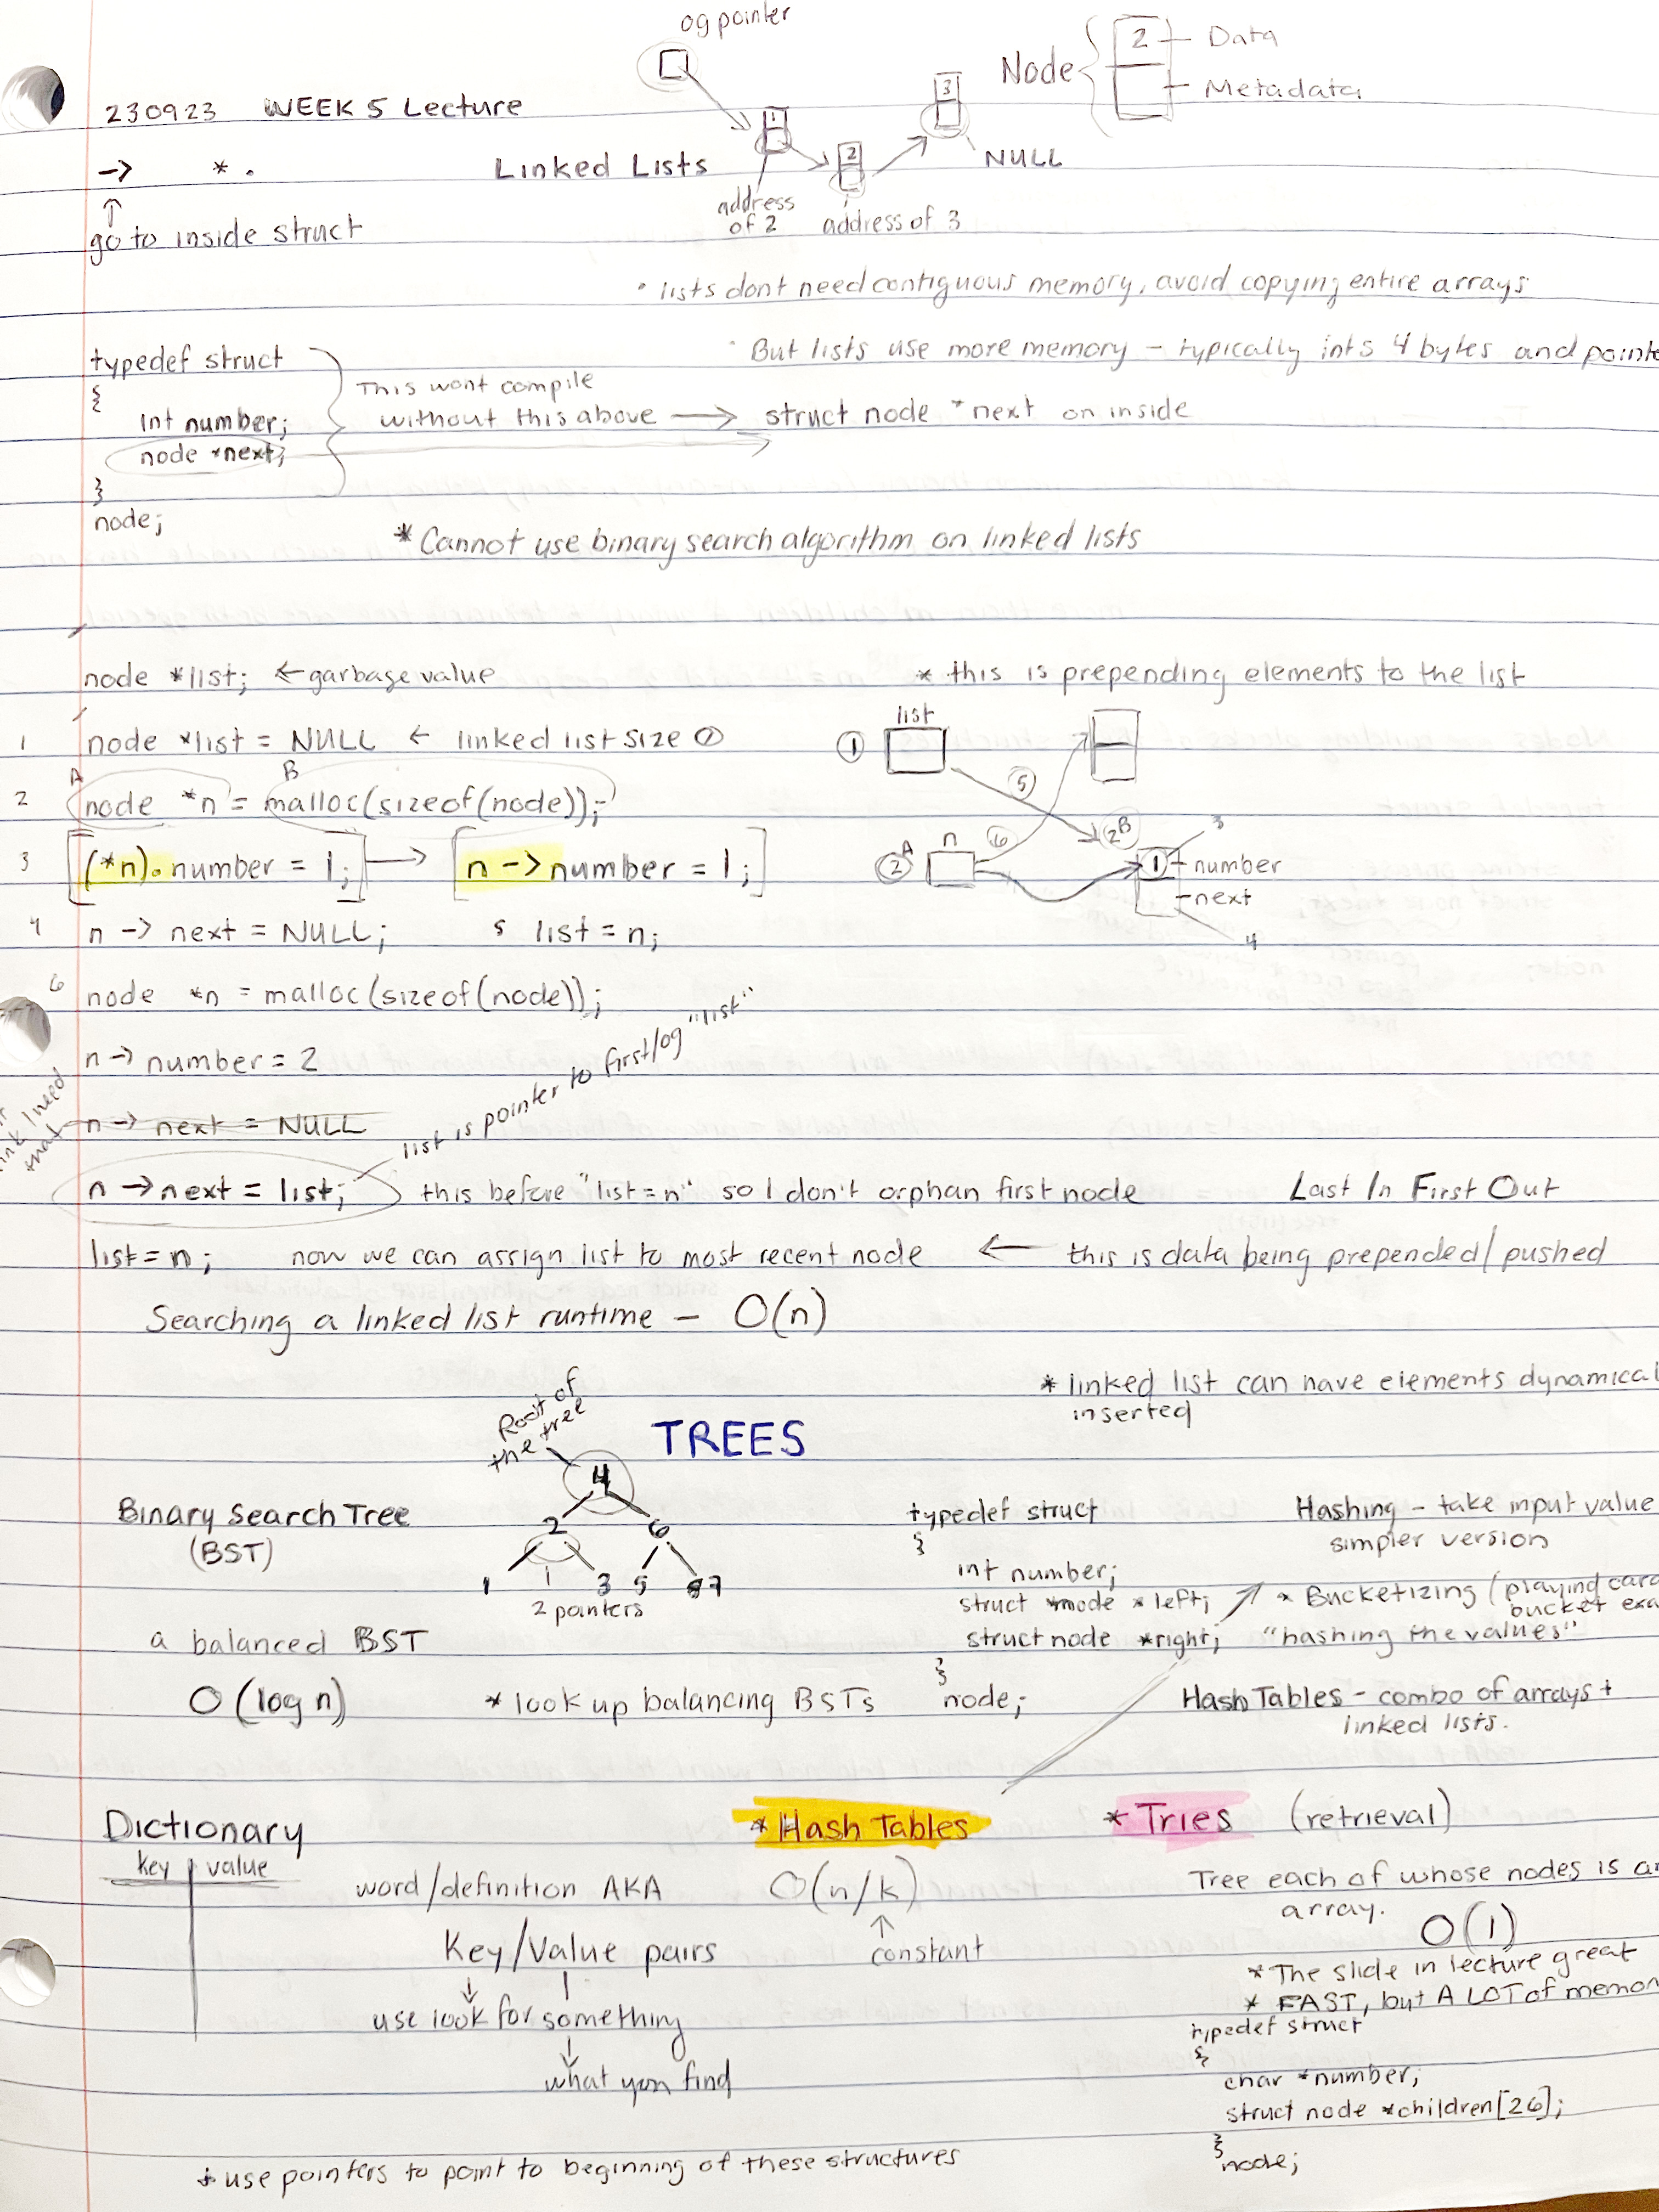 og pointer
Node { 2 - Data
- Metadata
230923 WEEK 5 Lecture
1
2
3
NULL
-> * .
Linked Lists
address of 2
address of 3
↑
go to inside struct
• lists dont need contiguous memory, avoid copying entire arrays
• But lists use more memory - typically ints 4 bytes and pointe
typedef struct
{
int number;
node *next;
}
node;
This wont compile
without this above → struct node *next on inside
* Cannot use binary search algorithm on linked lists
node *list; ← garbage value
* this is prepending elements to the list
1 node *list = NULL ← linked list size 0
A B
2 node *n = malloc(sizeof(node));
3 [(*n).number = 1;] → [n -> number = 1;]
4 n -> next = NULL; 5 list = n;
list
1
5
2B
3
2A n 6
1 - number
- next
4
6 node *n = malloc(sizeof(node));
n -> number = 2
n -> next = NULL
that
list is pointer to first/og "list"
n -> next = list; this before "list = n" so I don't orphan first node
Last In First Out
list = n; now we can assign list to most recent node ← this is data being prepended/pushed
Searching a linked list runtime - O(n)
* linked list can have elements dynamical
inserted
TREES
Root of
the tree
4
2 6
1 3 5 7
2 pointers
Binary Search Tree
(BST)
a balanced BST
O(log n)
* look up balancing BSTs
typedef struct
{
int number;
struct node *left;
struct node *right;
}
node;
Hashing - take input value
simpler version
* Bucketizing (playing card
bucket exa
"hashing the values"
Hash Tables - combo of arrays +
linked lists.
Dictionary
key | value
word/definition AKA
Key/Value pairs
↓
use look for something
↓
what you find
* Hash Tables
O(n/k)
↑
constant
* Tries (retrieval)
Tree each of whose nodes is a
array.
O(1)
* The slide in lecture great
* FAST, but A LOT of memor
typedef struct
{
char *number;
struct node *children[26];
}
node;
* use pointers to point to beginning of these structures